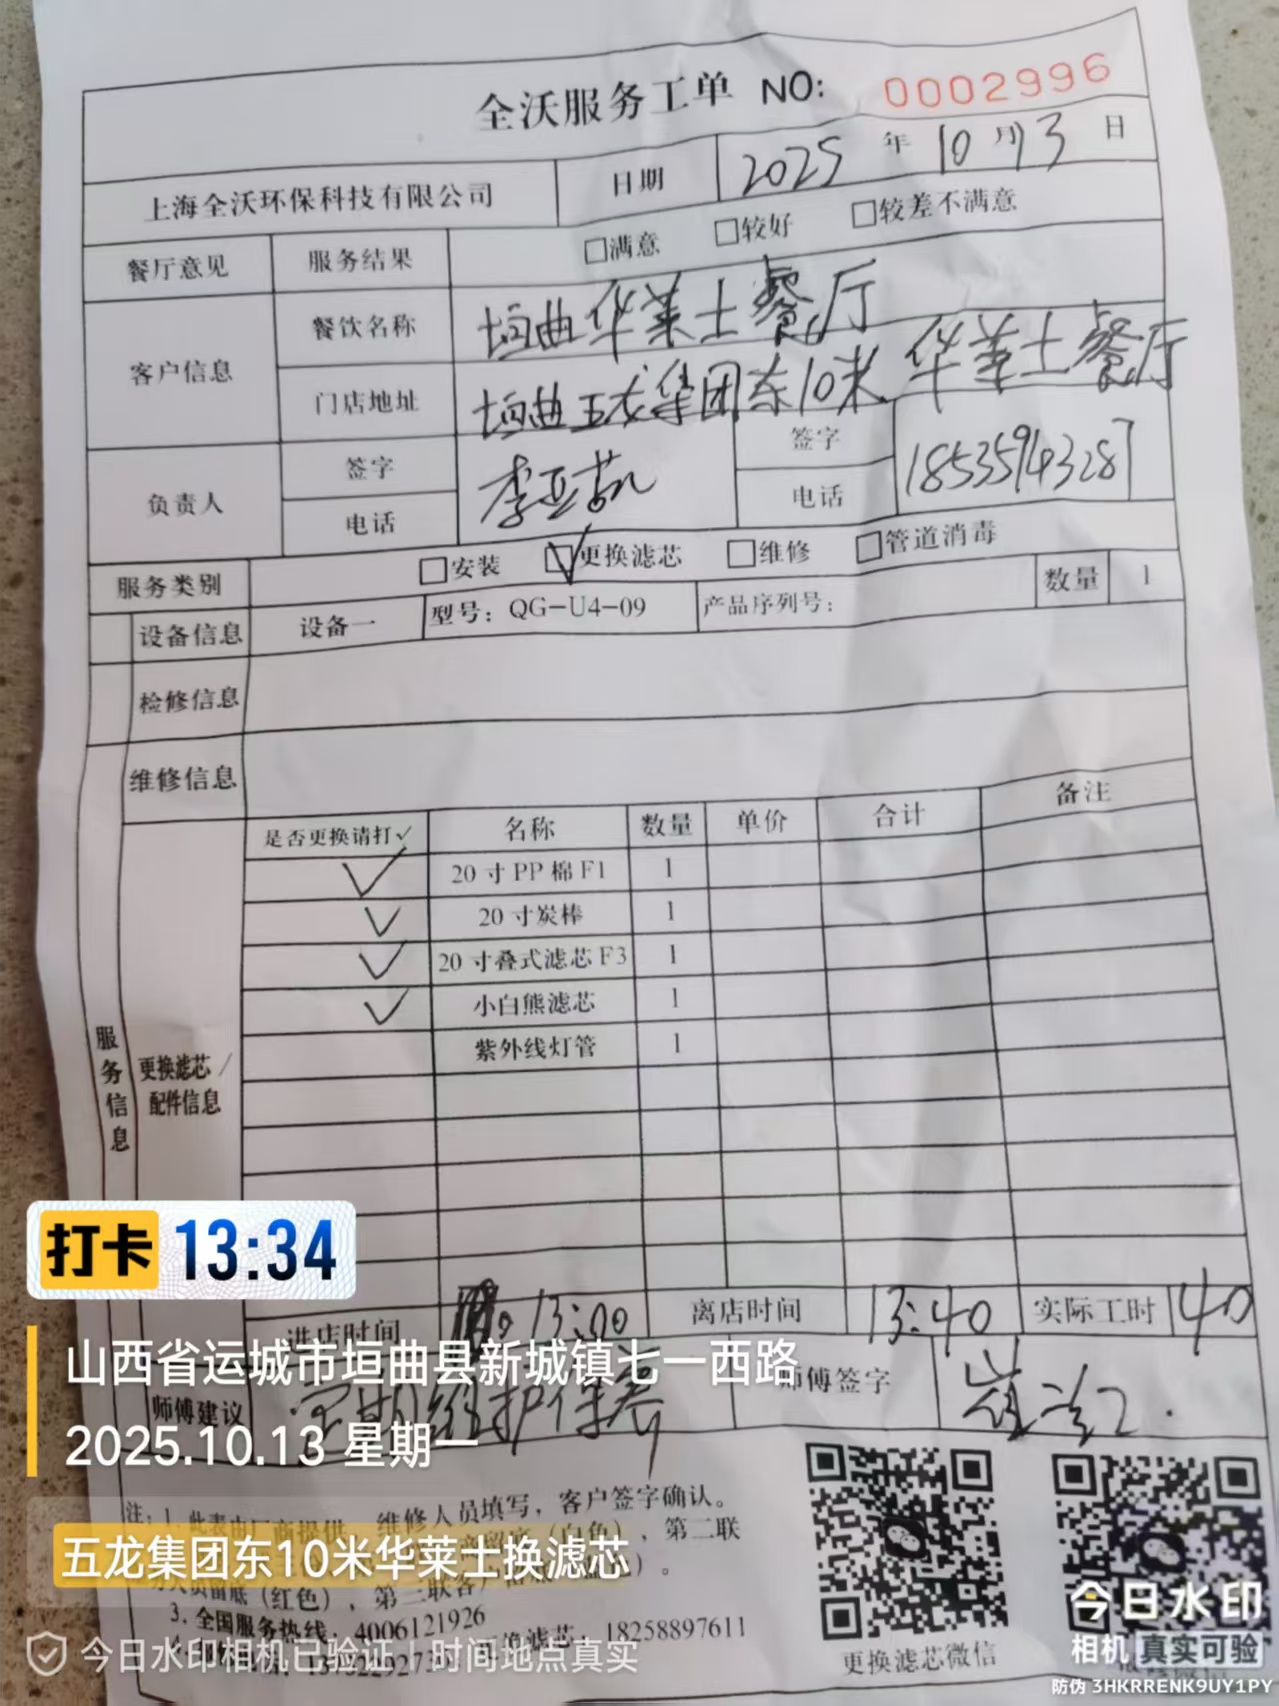 全沃服务工单 NO: 0002996
上海全沃环保科技有限公司 日期 2025 年 10 月 13 日
餐厅意见 服务结果 □满意 □较好 □较差不满意
客户信息 餐饮名称 垣曲华莱士餐厅
门店地址 垣曲五龙集团东10米 华莱士餐厅
负责人 签字 签字
电话 电话 18535943287
服务类别 □安装 ☑更换滤芯 □维修 □管道消毒
设备信息 设备一 型号：QG-U4-09 产品序列号： 数量 1
检修信息
维修信息
服务信息
更换滤芯/
配件信息
是否更换请打✓ 名称 数量 单价 合计 备注
✓ 20寸PP棉F1 1
✓ 20寸炭棒 1
✓ 20寸叠式滤芯F3 1
✓ 小白熊滤芯 1
紫外线灯管 1
打卡 13:34
进店时间 13:00 离店时间 13:40 实际工时 40
山西省运城市垣曲县新城镇七一西路
师傅建议 定期维护保养 师傅签字
2025.10.13 星期一
注：1. 此表由厂商提供，维修人员填写，客户签字确认。
（白色），第二联
五龙集团东10米华莱士换滤芯
留底（红色），第三联客户
3. 全国服务热线：4006121926
更换滤芯：18258897611
今日水印相机已验证 | 时间地点真实
更换滤芯微信
今日水印
相机 真实可验
防伪 3HKRRENK9UY1PY